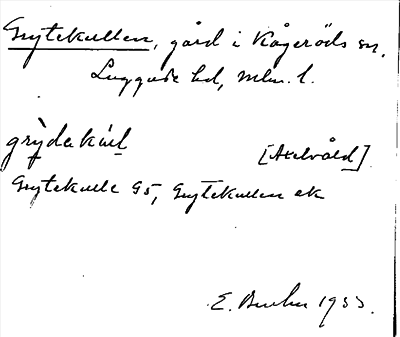 Grytekullen, gård i Kågeröds sn.
Luggude hd, mlm. l.
grỳdakúl [Axelvåld]
Grytekulle G5, Grytekullen ek
E. 1933.